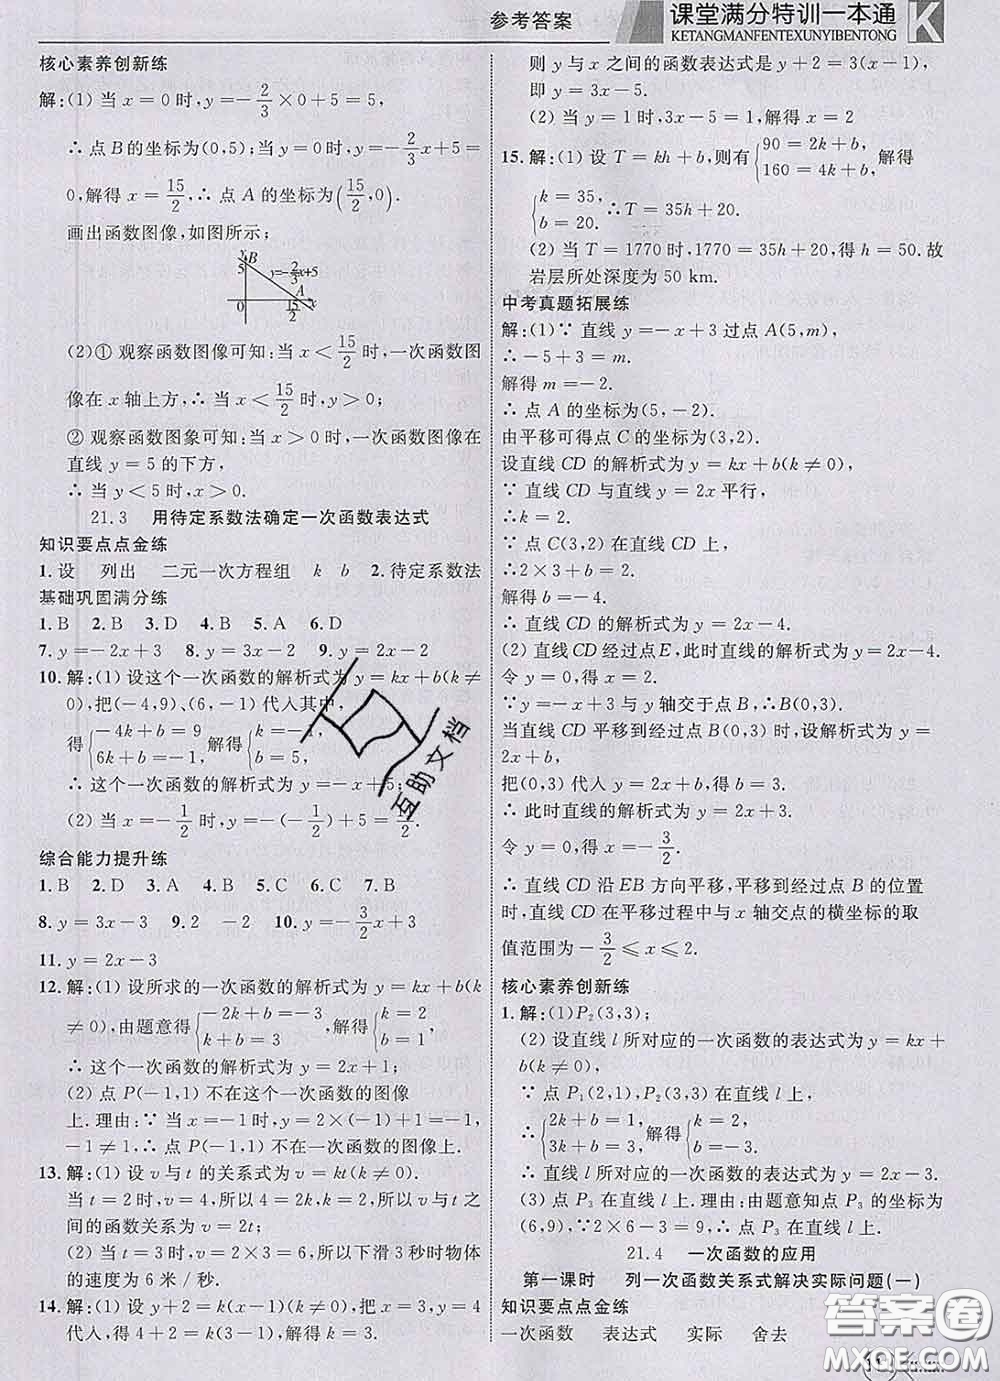 参考答案
课堂满分特训一本通
KETANGMANFENTEXUNYIBENTONG
K
核心素养创新练
解:(1) 当 x=0 时,y=-2/3×0+5=5,
∴ 点 B 的坐标为(0,5);当 y=0 时,-2/3x+5=
0,解得 x=15/2,∴ 点 A 的坐标为(15/2,0).
画出函数图像,如图所示;
y
B
5
y=-2/3x+5
A
0
15/2
x
(2)① 观察函数图像可知:当 x<15/2 时,一次函数图
像在 x 轴上方,∴ 当 x<15/2 时,y>0;
② 观察函数图象可知:当 x>0 时,一次函数图像在
直线 y=5 的下方,
∴ 当 y<5 时,x>0.
21.3 用待定系数法确定一次函数表达式
知识要点点金练
1. 设 列出 二元一次方程组 k b 2. 待定系数法
基础巩固满分练
1. B 2. B 3. D 4. B 5. A 6. D
7. y=-2x+3 8. y=3x-2 9. y=2x-2
10. 解:(1) 设这个一次函数的解析式为 y=kx+b(k≠
0),把(-4,9)、(6,-1) 代入其中,
得{-4k+b=9, 6k+b=-1, 解得{k=-1, b=5,
∴ 这个一次函数的解析式为 y=-x+5;
(2) 当 x=-1/2 时,y=-(-1/2)+5=11/2.
综合能力提升练
1. B 2. D 3. A 4. B 5. C 6. C 7. B
8. y=3x-3 9. 2 -2 10. y=-3/2x+3
11. y=2x-3
12. 解:(1) 设所求的一次函数的解析式为 y=kx+b(k
≠0),由题意得{-2k+b=-3, k+b=3, 解得{k=2, b=1,
∴ 这个一次函数的解析式为 y=2x+1;
(2) 点 P(-1,1) 不在这个一次函数的图像
上.理由:∵ 当 x=-1 时,y=2×(-1)+1=-1,
-1≠1,∴ 点 P(-1,1) 不在一次函数的图像上.
13. 解:(1) 设 v 与 t 的关系式为 v=kt(k≠0).
当 t=2 时,v=4,所以 4=2k,k=2,所以 v 与 t 之
间的函数关系为 v=2t;
(2) 当 t=3 时,v=2×3=6,所以下滑 3 秒时物体
的速度为 6 米/秒.
14. 解:(1) 设 y+2=k(x-1)(k≠0),把 x=3,y=4
代入,得 4+2=k(3-1),解得 k=3,
则 y 与 x 之间的函数表达式是 y+2=3(x-1),
即 y=3x-5.
(2) 当 y=1 时,3x-5=1,解得 x=2
15. 解:(1) 设 T=kh+b,则有{90=2k+b, 160=4k+b, 解得
{k=35, b=20. ∴T=35h+20.
(2) 当 T=1770 时,1770=35h+20,得 h=50.故
岩层所处深度为 50 km.
中考真题拓展练
解:(1)∵ 直线 y=-x+3 过点 A(5,m),
∴-5+3=m.
解得 m=-2.
∴ 点 A 的坐标为(5,-2).
由平移可得点 C 的坐标为(3,2).
设直线 CD 的解析式为 y=kx+b(k≠0),
∵ 直线 CD 与直线 y=2x 平行,
∴k=2.
∵ 点 C(3,2) 在直线 CD 上,
∴2×3+b=2.
解得 b=-4.
∴ 直线 CD 的解析式为 y=2x-4.
(2) 直线 CD 经过点 E,此时直线的解析式为 y=2x-4.
令 y=0,得 x=2.
∵y=-x+3 与 y 轴交于点 B,∴B(0,3).
当直线 CD 平移到经过点 B(0,3) 时,设解析式为 y=
2x+b,
把(0,3) 代入 y=2x+b,得 b=3.
∴ 此时直线的解析式为 y=2x+3.
令 y=0,得 x=-3/2.
∴ 直线 CD 沿 EB 方向平移,平移到经过点 B 的位置
时,直线 CD 在平移过程中与 x 轴交点的横坐标的取
值范围为 -3/2≤x≤2.
核心素养创新练
1. 解:(1)P₂(3,3);
(2) 设直线 l 所对应的一次函数的表达式为 y=kx+
b(k≠0).
∵ 点 P₁(2,1),P₂(3,3) 在直线 l 上,
∴{2k+b=1, 3k+b=3, 解得{k=2, b=-3.
∴ 直线 l 所对应的一次函数的表达式为 y=2x-3.
(3) 点 P₃ 在直线 l 上.理由:由题意知点 P₃ 的坐标为
(6,9),∵2×6-3=9,∴ 点 P₃ 在直线 l 上.
21.4 一次函数的应用
第一课时 列一次函数关系式解决实际问题(一)
知识要点点金练
一次函数 表达式 实际 舍去
互助文档
答案圈
MXQE.COM